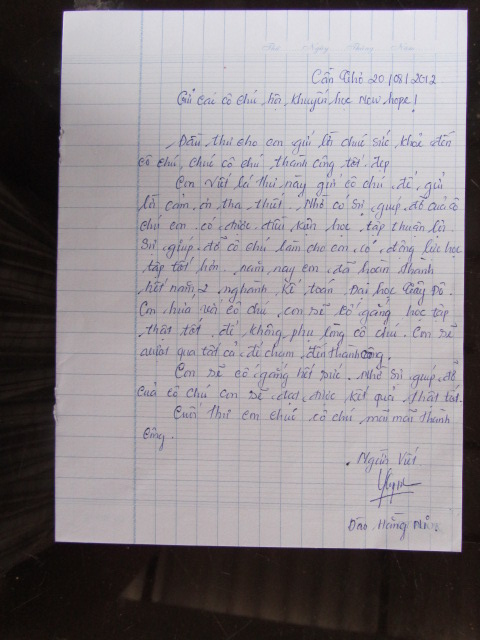 Thứ Ngày Tháng Năm
Cần Thơ 20/08/2012
Gửi các cô chú hội khuyến học New hope!
Đầu thư cho con gửi lời chúc sức khỏe đến
cô chú, chúc cô chú thành công tốt đẹp
Con viết lá thư này gửi cô chú để gửi
lời cảm ơn tha thiết. Nhờ có sự giúp đỡ của cô
chú em có được điều kiện học tập thuận lợi
Sự giúp đỡ cô chú làm cho em có động lực học
tập tốt hơn. năm nay em đã hoàn thành
hết năm 2 nghành kế toán Đại học Tây Đô.
Con hứa với cô chú con sẽ cố gắng học tập
thật tốt để không phụ lòng cô chú. Con sẽ
vượt qua tất cả để chạm đến thành công.
Con sẽ cố gắng hết sức. Nhờ sự giúp đỡ
của cô chú con sẽ đạt được kết quả thật tốt.
Cuối thư em chúc cô chú mãi mãi thành
công.
Người Viết
Đào Hồng